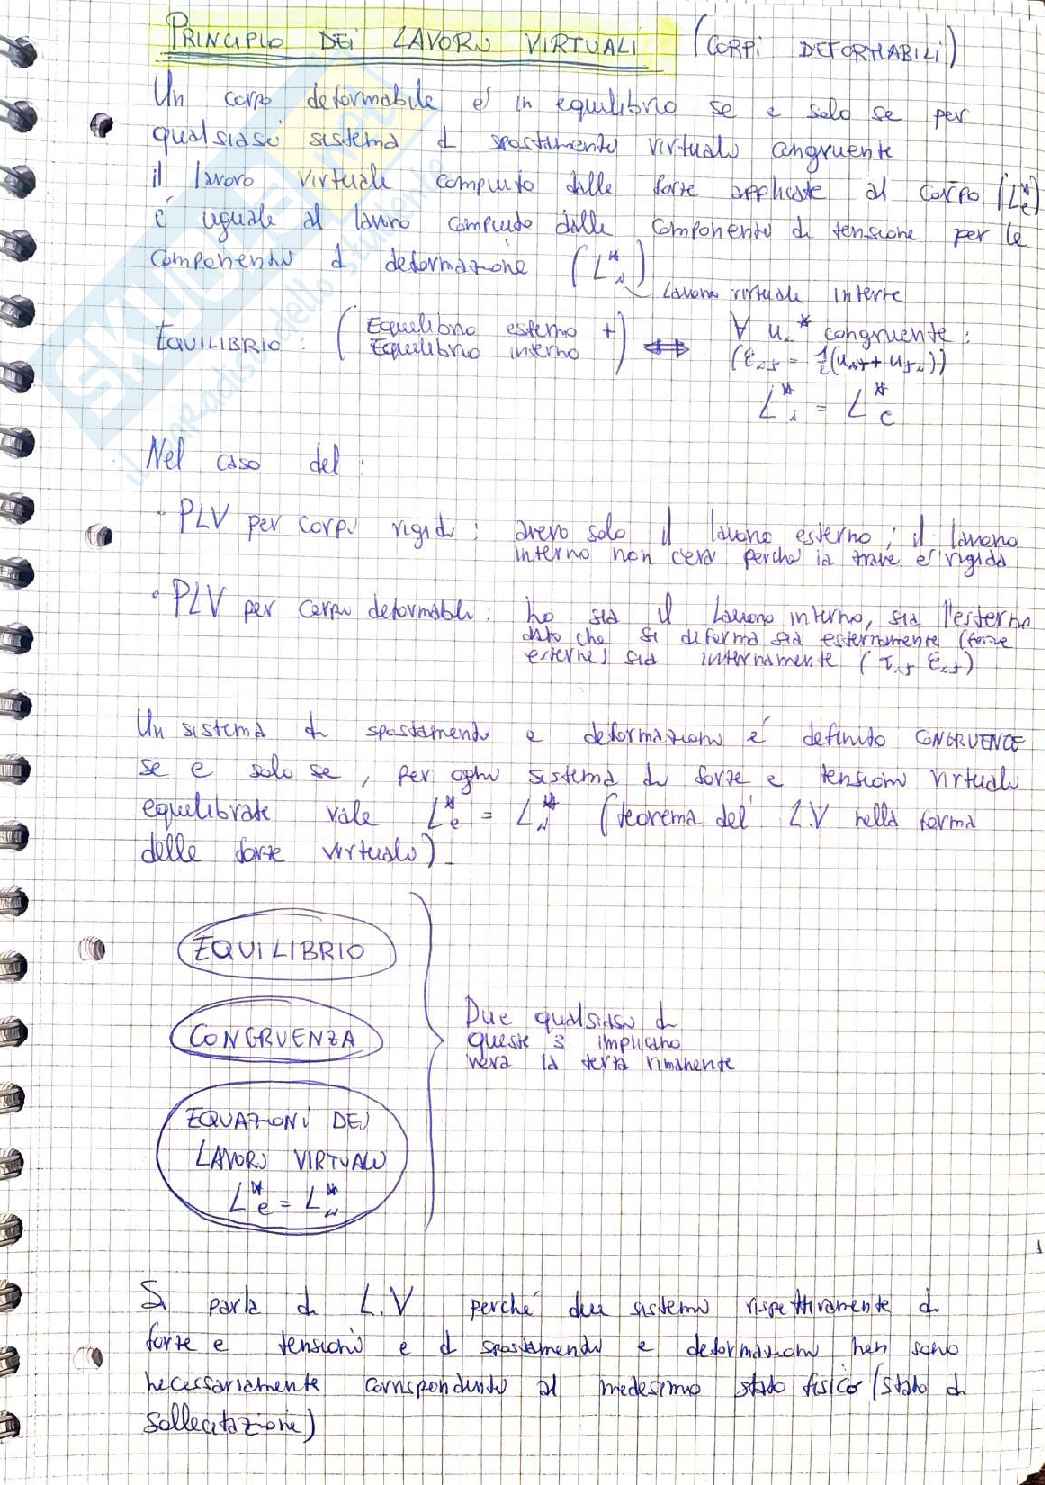 PRINCIPIO DEI LAVORI VIRTUALI (CORPI DEFORMABILI)
Un corpo deformabile é in equilibrio se e solo se per
qualsiasi sistema di spostamenti virtuali congruente
il lavoro virtuale compiuto dalle forze applicate al corpo (L*e)
é uguale al lavoro compiuto dalle componenti di tensione per le
componenti di deformazione (L*i)
Lavoro virtuale interne
EQUILIBRIO : (Equilibrio esterno + Equilibrio interno) ⟺ ∀ ui* congruente :
(εij = 1/2(ui,j + uj,i))
L*i = L*e
Nel caso del :
• PLV per corpi rigidi : avevo solo il lavoro esterno ; il lavoro
interno non c'era perche la trave e' rigida
• PLV per corpi deformabili : ho sia il lavoro interno, sia l'esterno
dato che si deforma sia esternamente (forze
esterne) sia internamente (τij εij)
Un sistema di spostamenti e deformazioni é definito CONGRUENTE
se e solo se, per ogni sistema di forze e tensioni virtuali
equilibrate vale L*e = L*i (teorema dei L.V nella forma
delle forze virtuali)
EQUILIBRIO
CONGRUENZA
EQUAZIONI DEI
LAVORI VIRTUALI
L*e = L*i
Due qualsiasi di
queste 3 implicano
vera la terza rimanente
Si parla di L.V perché due sistemi rispettivamente di
forze e tensioni e di spostamenti e deformazioni non sono
necessariamente corrispondenti al medesimo stato fisico (stato di
sollecitazione)
1
SKUOLA.net
il paradiso dello studente